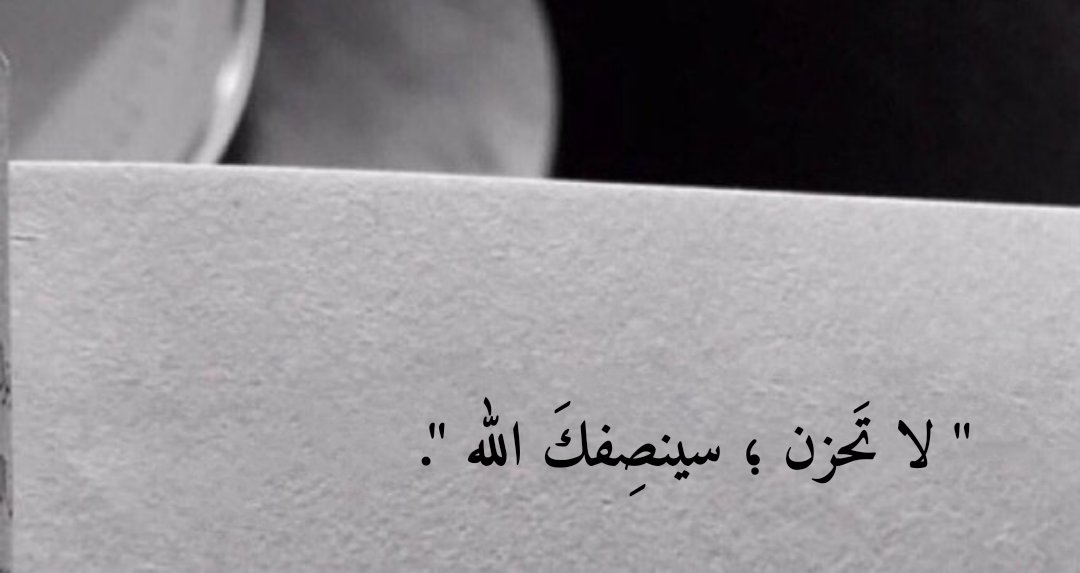 " لا تَحزن ؛ سينصِفكَ الله ".